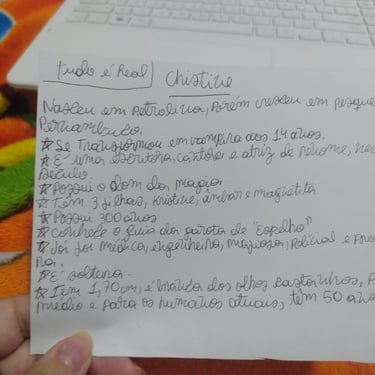 Tudo é Real Christine
Nasceu em Petrolina, Porém cresceu em pesque
Pernambuco.
☆ Se Transformou em vampira aos 14 anos.
☆ É uma escritora, cantora e atriz de renome, nes
século.
☆ Possui o dom da magia
☆ Tem 3 filhas, Kristine, âmbar e magnetita
☆ Possui 300 anos
☆ Conhece o guia da garota de "Espelho"
☆ Já foi médica, engenheira, mafiosa, Policial e
na.
☆ É solteira.
☆ Tem 1,70cm, é branca dos olhos castanhos, P
médio e para os humanos atuais, têm 50 anos